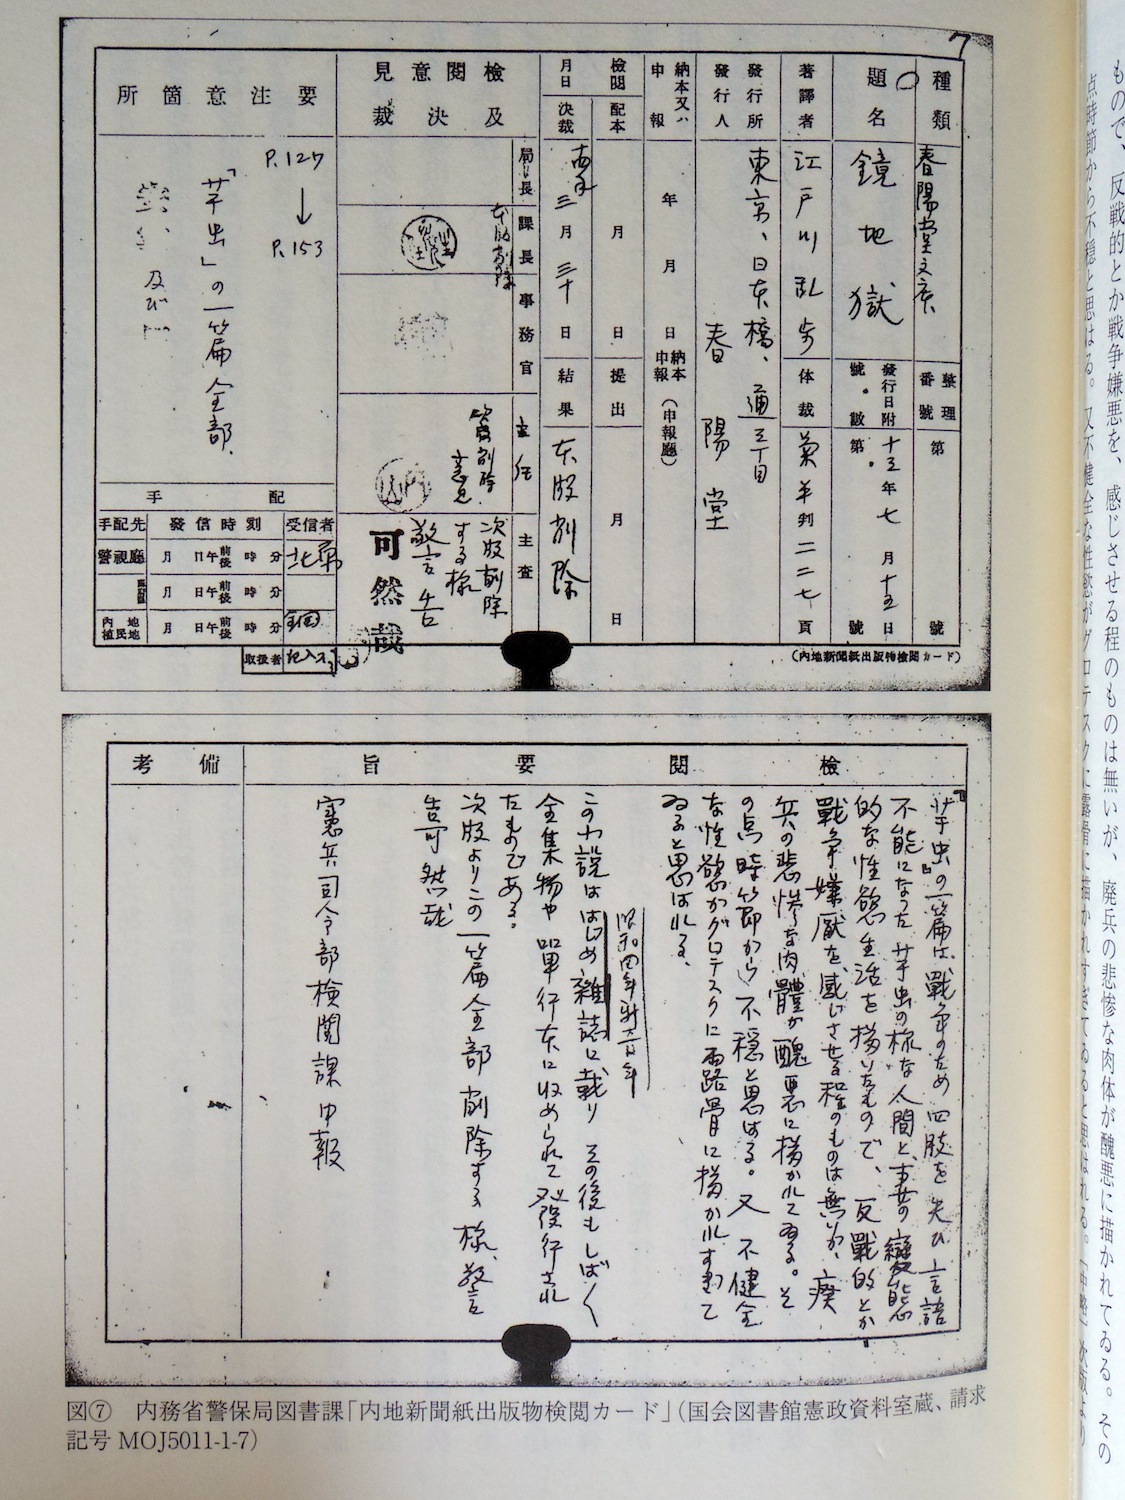 7
種類
春陽堂文庫
整理番號
第
號
題名
鏡地獄
發行日附
號・數
十五年七月十五日
第
號
著譯者
江戸川乱歩
体裁
菊半判二二七頁
發行所
發行人
東京、日本橋、通三丁目
春陽堂
納本又ハ申報
年
月
日
納本申報(申報廳)
檢閲
配本
月
日
提出
月
日
月日
決裁
三月三十日
結果
本版削除
檢閲意見
及決裁
局長
課長
本版削除
事務官
主任
主査
次版削除
する様
警告
可然哉
要注意箇所
P.127
↓
P.153
「芋虫」の一篇全部、
及び
手配
手配先
發信時刻
受信者
警視廳
月 日 午前後 時 分
月 日 午前後 時 分
内地
植民地
月 日 午前後 時 分
取扱者
(内地新聞紙出版物檢閲カード)
檢閲要旨
備考
「芋虫」の一篇は、戰争のため四肢を失ひ言語
不能になった芋虫の様な人間と、妻の變態
的な性慾生活を描いたもので、反戰的とか
戰争嫌厭を、感じさせる程のものは無いが、癈
兵の悲惨な肉體が醜悪に描かれてゐる。そ
の点時節から不穏と思はる。又不健全
な性慾がグロテスクに露骨に描かれすぎて
ゐると思はれる。
昭和四年新青年
この小説ははじめ雑誌に載り その後もしば〱
全集物や單行本に収められて發行され
たものである。
次版よりこの一篇全部削除する様、警
告可然哉
憲兵司令部検閲課申報
図⑦ 内務省警保局図書課「内地新聞紙出版物検閲カード」(国会図書館憲政資料室蔵、請求
記号 MOJ5011-1-7)
もので、反戦的とか戦争嫌悪を、感じさせる程のものは無いが、廃兵の悲惨な肉体が醜悪に描かれてゐる。その
点時節から不穏と思はる。又不健全な性慾がグロテスクに露骨に描かれすぎてゐると思はれる。〔中略〕次版より